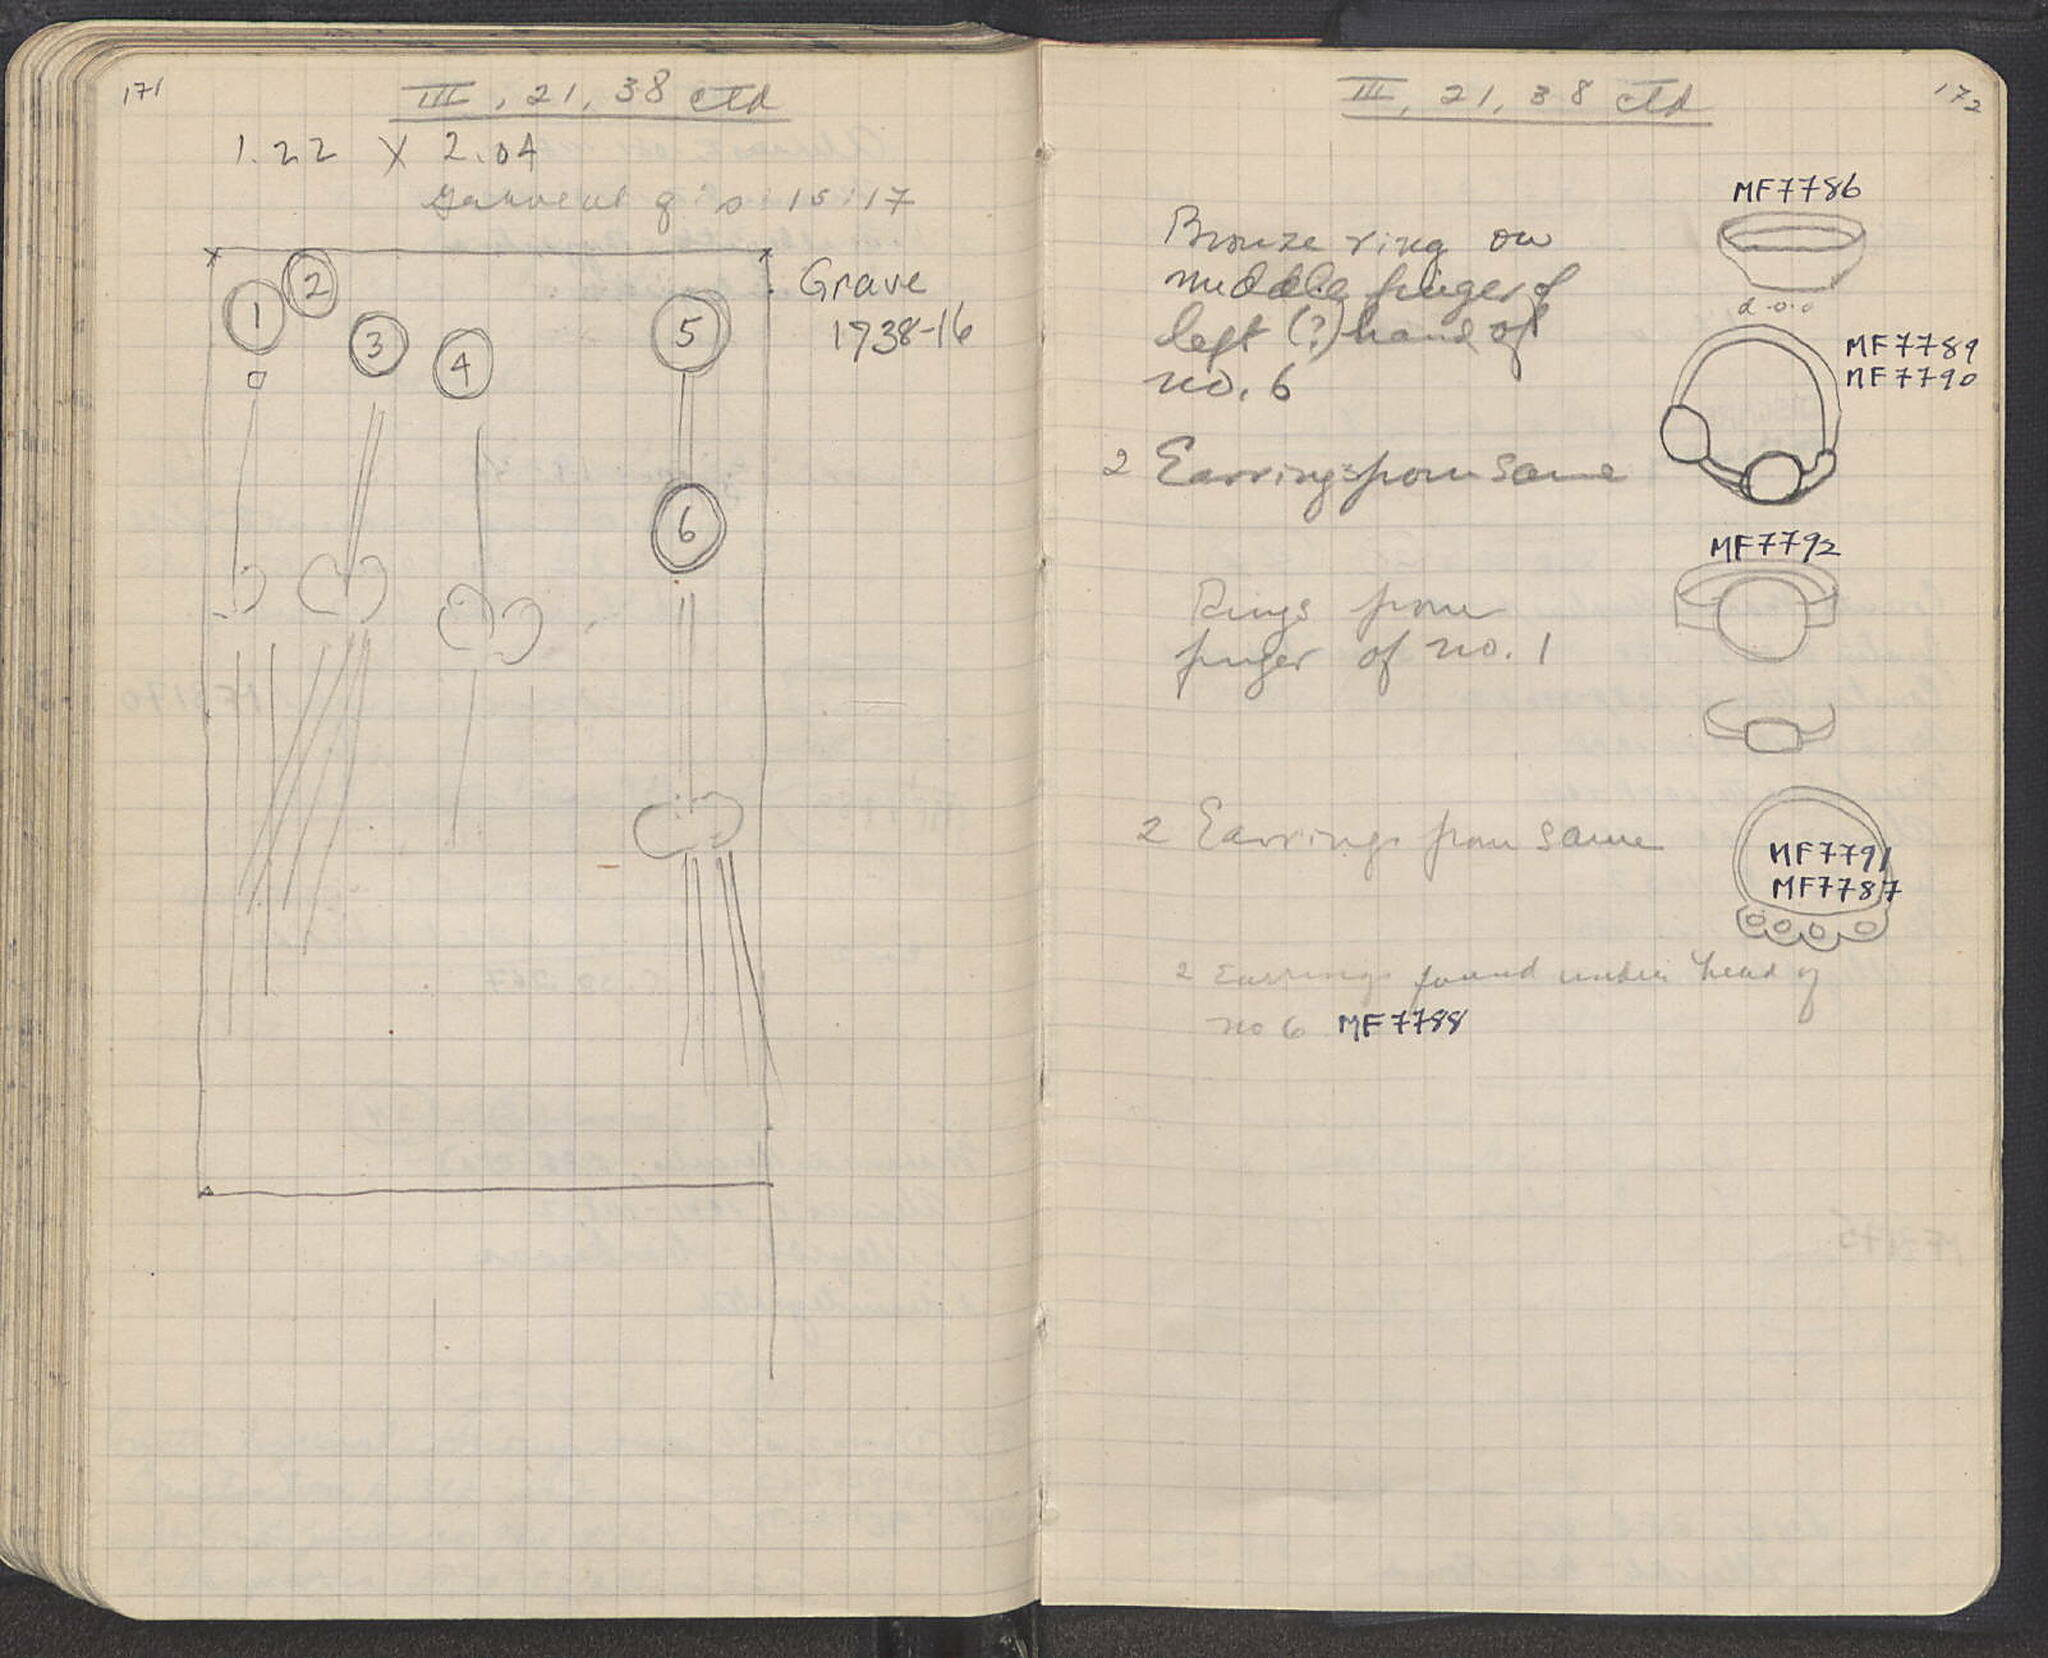 171
III, 21, 38 ctd
1.22 X 2.04
15:17
1
2
3
4
5
6
Grave
1738-16
172
III, 21, 38 ctd
MF7786
Bronze ring on
middle finger of
left (?) hand of
no. 6
MF7789
MF7790
2 Earrings from same
MF7792
Rings from
finger of no. 1
2 Earrings from same
MF7791
MF7787
2 Earrings found under head of
no 6 MF7788